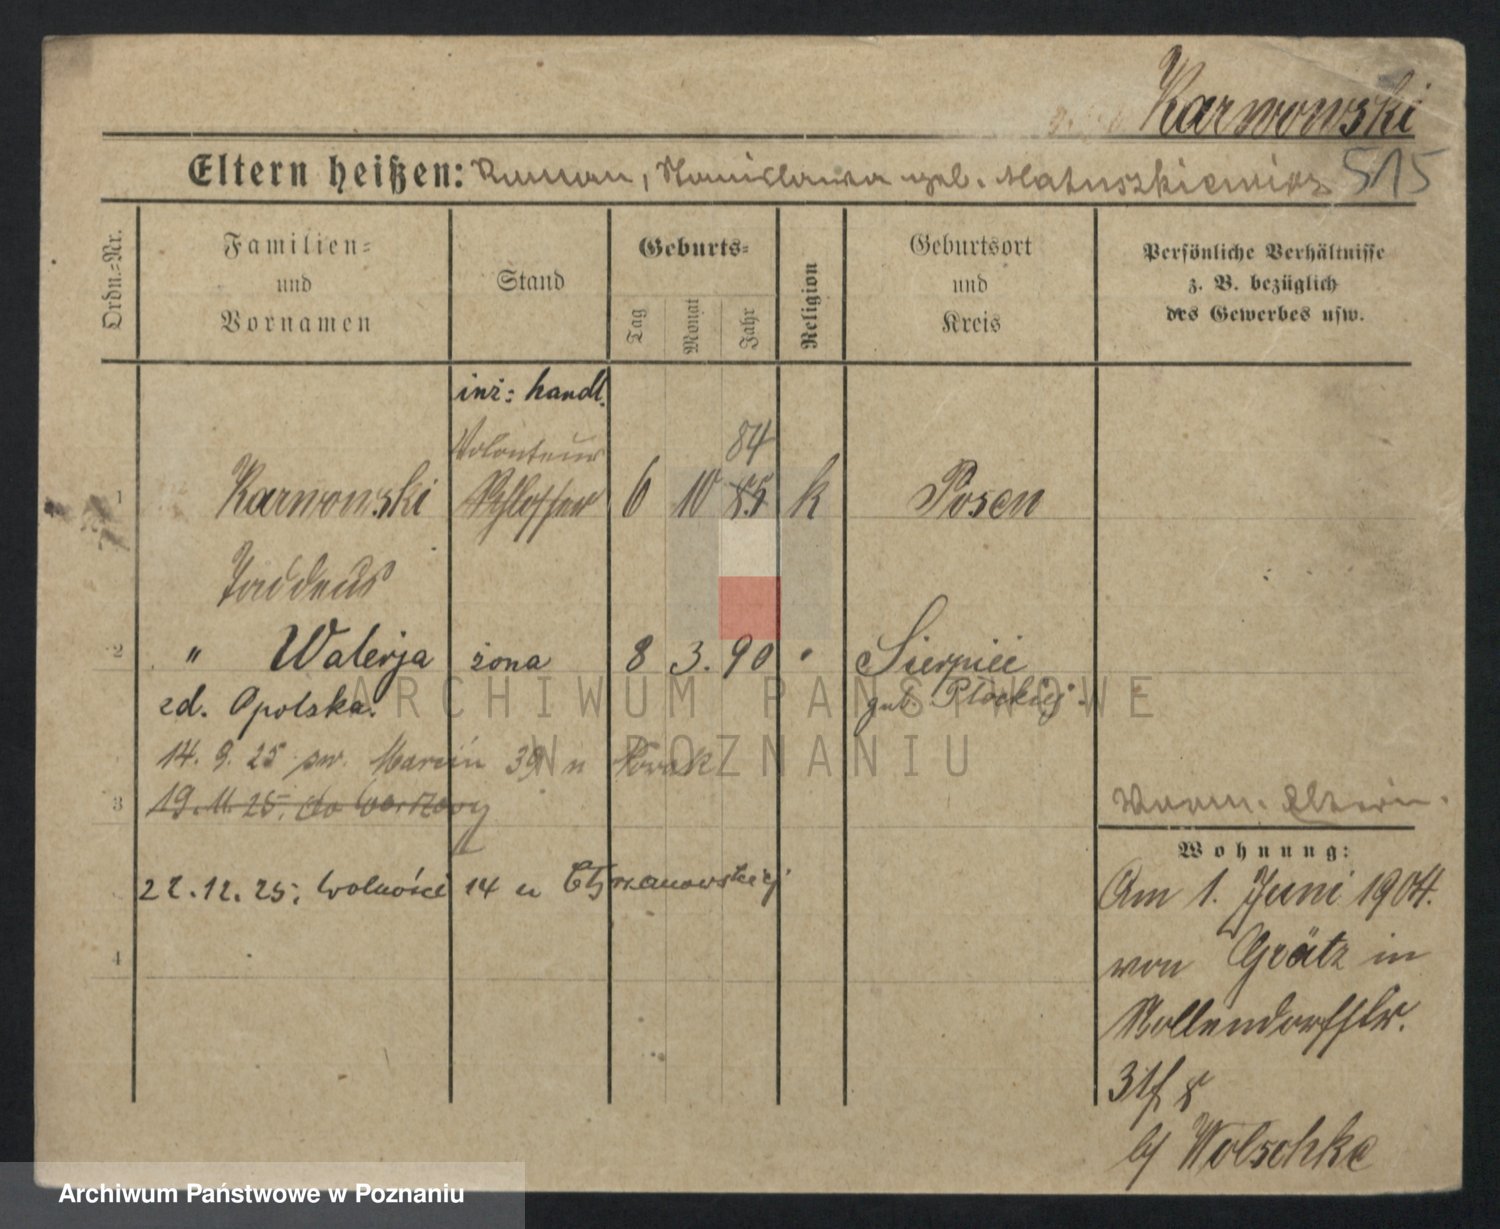 Karwowski
Eltern heißen: Roman, Stanislawa geb. Matuszkiewicz 515
Ordn.-Nr.
Familien- und Vornamen
Stand
Geburts-
Tag
Monat
Jahr
Religion
Geburtsort und Kreis
Persönliche Verhältnisse z. B. bezüglich des Gewerbes usw.
inż: handl.
Volonteur
84
1 Karwowski Schlosser 6 10 85 k Posen
Taddeus
2 " Walerja żona 8 3. 90 " Sierpiec
zd. Opolska. gub. Płockiej.
14. 9. 25 św. Marcin 39 u Nowak
3 19.11.25. do Warszawy
22.12.25; Wolności 14 u Chrzanowskiej
4
Eltern.
Wohnung:
Am 1. Juni 1904.
von Grätz in
Nollendorfstr.
31
b/ Wolschke
ARCHIWUM PAŃSTWOWE
W POZNANIU
Archiwum Państwowe w Poznaniu